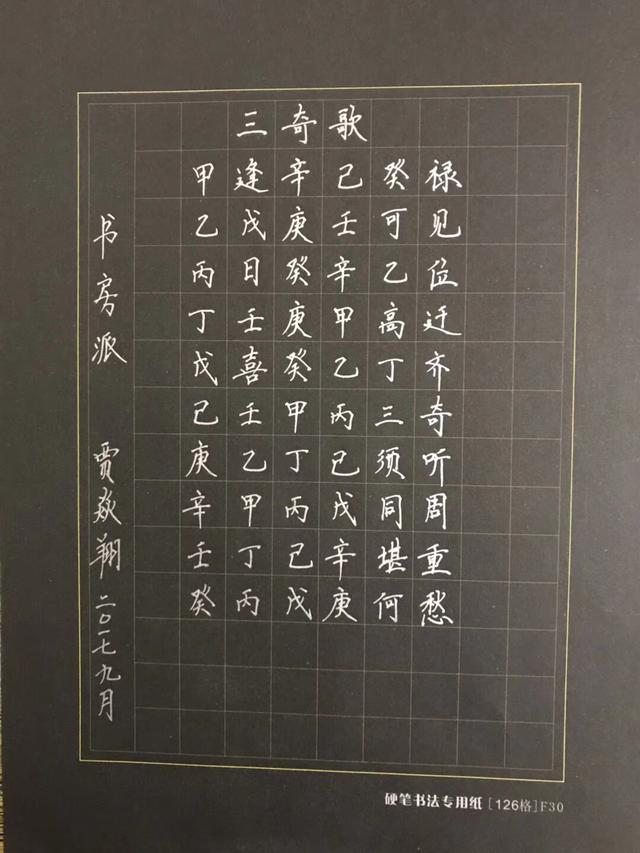 三奇歌
甲逢辛己癸禄
乙戊庚壬可见
丙日癸辛乙位
丁壬庚甲高迁
戊喜癸乙丁齐
己壬甲丙三奇
庚乙丁己须听
辛甲丙戊同周
壬丁己辛堪重
癸丙戊庚何愁
书房派 贾焱翔 二〇一七九月
硬笔书法专用纸[126格]F30